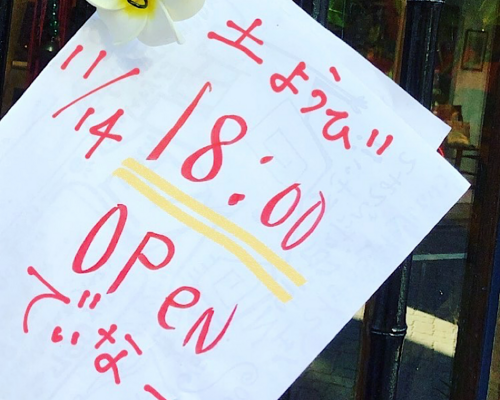 11/14 土ようび
18:00
OPEN